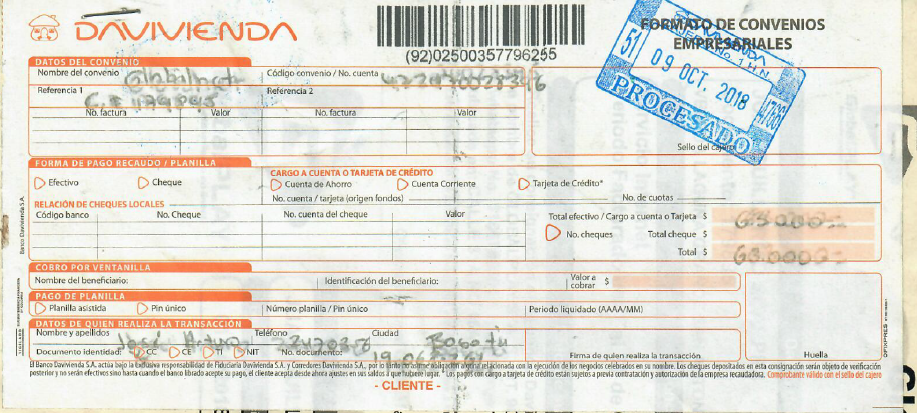 DAVIVIENDA
(92)02500357796255
FORMATO DE CONVENIOS
EMPRESARIALES
51
09 OCT. 2018
PROCESADO
DATOS DEL CONVENIO
Nombre del convenio
Código convenio / No. cuenta
Referencia 1
Referencia 2
No. factura Valor No. factura Valor
Sello del cajero
FORMA DE PAGO RECAUDO / PLANILLA
CARGO A CUENTA O TARJETA DE CRÉDITO
Efectivo Cheque Cuenta de Ahorro Cuenta Corriente Tarjeta de Crédito*
No. cuenta / tarjeta (origen fondos) No. de cuotas
RELACIÓN DE CHEQUES LOCALES
Código banco No. Cheque No. cuenta del cheque Valor
Total efectivo / Cargo a cuenta o Tarjeta $
No. cheques Total cheque $
Total $ 63.000
Banco Davivienda S.A.
COBRO POR VENTANILLA
Nombre del beneficiario: Identificación del beneficiario: Valor a cobrar $
PAGO DE PLANILLA
Planilla asistida Pin único Número planilla / Pin único Periodo liquidado (AAAA/MM)
DATOS DE QUIEN REALIZA LA TRANSACCIÓN
Nombre y apellidos Teléfono Ciudad
José Arturo Bogotá
Documento identidad: CC CE TI NIT No. documento:
Firma de quien realiza la transacción
Huella
El Banco Davivienda S.A. actúa bajo la exclusiva responsabilidad de Fiduciaria Davivienda S.A. y Corredores Davivienda S.A., por lo tanto no asume obligación alguna relacionada con la ejecución de los negocios celebrados en su nombre. Los cheques depositados en esta consignación serán objeto de verificación
posterior y no serán efectivos sino hasta cuando el banco librado acepte su pago, el cliente acepta desde ahora ajustes en sus saldos a que hubiere lugar. * Los pagos con cargo a tarjeta de crédito están sujetos a previa contratación y autorización de la empresa recaudadora. Comprobante válido con el sello del cajero
- CLIENTE -